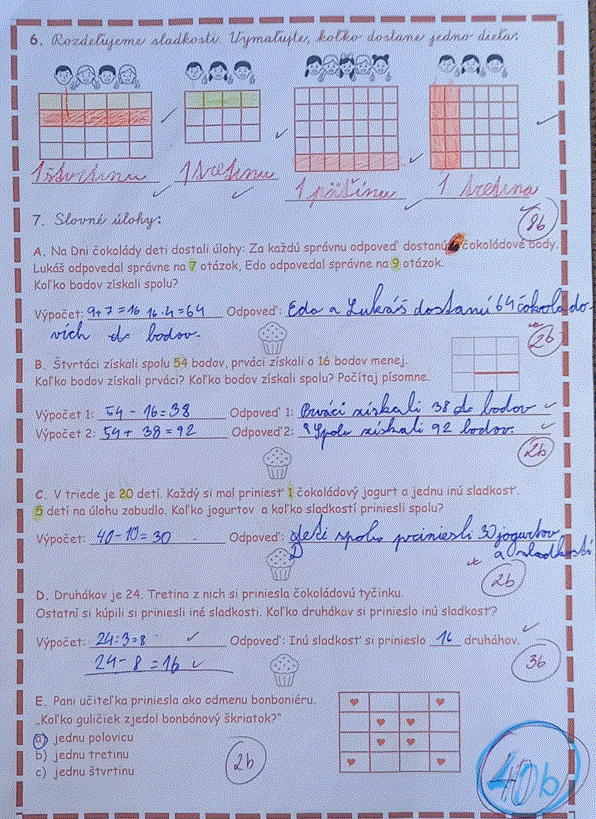 6. Rozdeľujeme sladkosti. Vymaľujte, koľko dostane jedno dieťa.
1 štvrtinu 1 tretinu 1 pätinu 1 tretina
8b
7. Slovné úlohy:
A. Na Dni čokolády deti dostali úlohy: Za každú správnu odpoveď dostanú čokoládové body.
Lukáš odpovedal správne na 7 otázok, Edo odpovedal správne na 9 otázok.
Koľko bodov získali spolu?
Výpočet: 9+7=16 16·4=64 Odpoveď: Edo a Lukáš dostanú 64 čokoládo-
vích bodov.
2b
B. Štvrtáci získali spolu 54 bodov, prváci získali o 16 bodov menej.
Koľko bodov získali prváci? Koľko bodov získali spolu? Počítaj písomne.
Výpočet 1: 54 - 16 = 38 Odpoveď 1: Prváci získali 38 bodov
Výpočet 2: 54 + 38 = 92 Odpoveď 2: Spolu získali 92 bodov.
2b
C. V triede je 20 detí. Každý si mal priniesť 1 čokoládový jogurt a jednu inú sladkosť.
5 detí na úlohu zabudlo. Koľko jogurtov a koľko sladkostí priniesli spolu?
Výpočet: 40 - 10 = 30 Odpoveď: deti spolu priniesli 30 jogurtov
a sladkostí
2b
D. Druhákov je 24. Tretina z nich si priniesla čokoládovú tyčinku.
Ostatní si kúpili si priniesli iné sladkosti. Koľko druhákov si prinieslo inú sladkosť?
Výpočet: 24:3=8 Odpoveď: Inú sladkosť si prinieslo 16 druháhov.
24 - 8 = 16
3b
E. Pani učiteľka priniesla ako odmenu bonboniéru.
„Koľko guličiek zjedol bonbónový škriatok?"
a) jednu polovicu
b) jednu tretinu
c) jednu štvrtinu
2b
40b